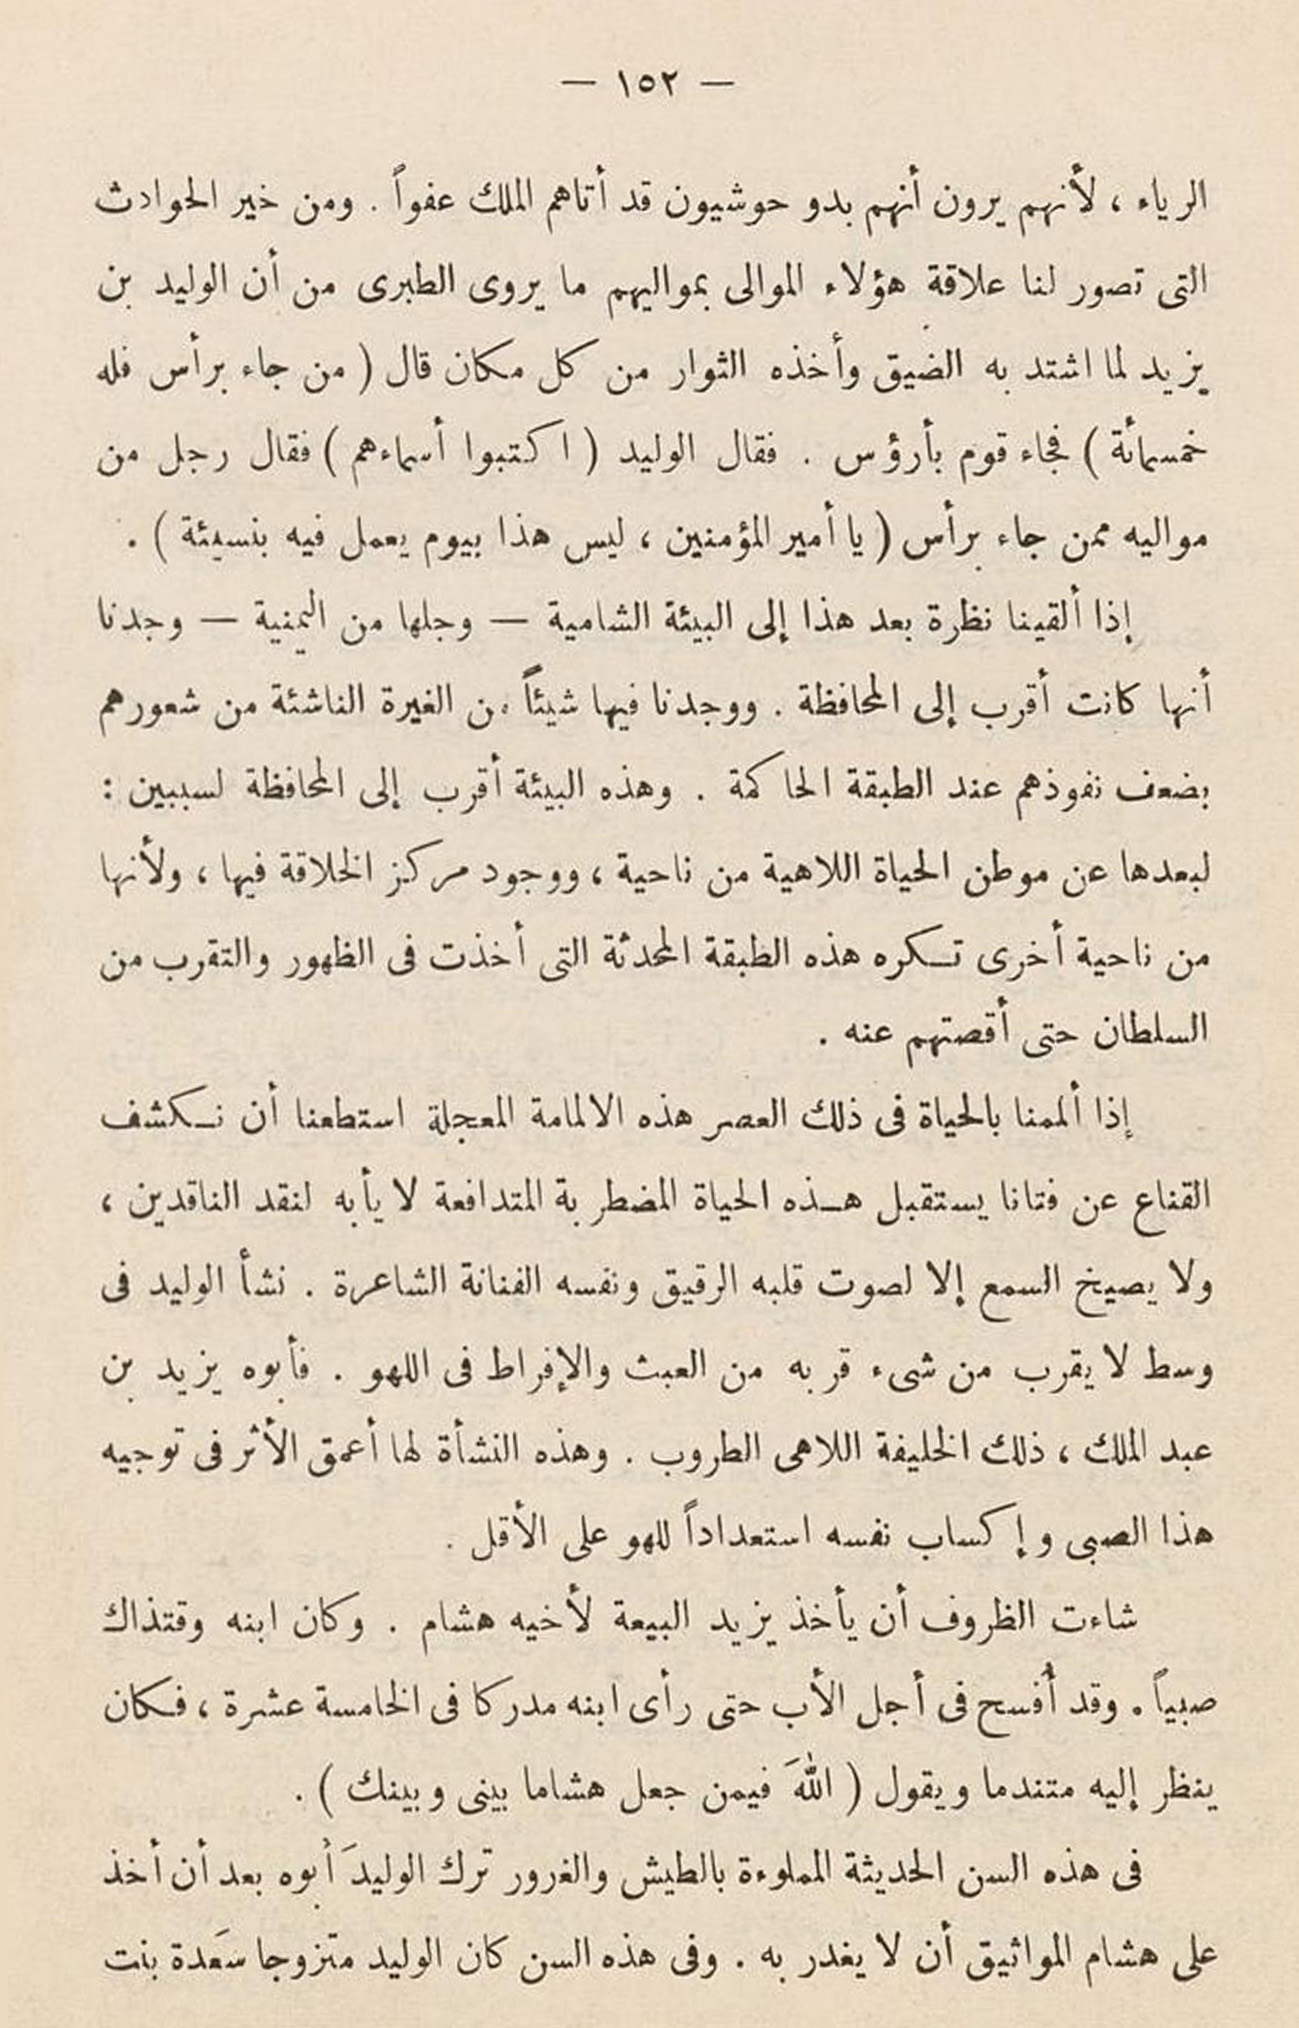 — ١٥٢ —
الرياء ، لأنهم يرون أنهم بدو حوشيون قد أتاهم الملك عفواً . ومن خير الحوادث
التى تصور لنا علاقة هؤلاء الموالى بمواليهم ما يروى الطبرى من أن الوليد بن
يزيد لما اشتد به الضيق وأخذه الثوار من كل مكان قال ( من جاء برأس فله
خمسمائة ) فجاء قوم بأرؤس . فقال الوليد ( اكتبوا أسماءهم ) فقال رجل من
مواليه ممن جاء برأس ( يا أمير المؤمنين ، ليس هذا بيوم يعمل فيه بنسيئة ) .
إذا ألقينا نظرة بعد هذا إلى البيئة الشامية — وجلها من اليمنية — وجدنا
أنها كانت أقرب إلى المحافظة . ووجدنا فيها شيئاً من الغيرة الناشئة من شعورهم
بضعف نفوذهم عند الطبقة الحاكمة . وهذه البيئة أقرب إلى المحافظة لسببين :
لبعدها عن موطن الحياة اللاهية من ناحية ، ووجود مركز الخلافة فيها ، ولأنها
من ناحية أخرى تكره هذه الطبقة المحدثة التى أخذت فى الظهور والتقرب من
السلطان حتى أقصتهم عنه .
إذا ألممنا بالحياة فى ذلك العصر هذه الالمامة المعجلة استطعنا أن نكشف
القناع عن فتانا يستقبل هذه الحياة المضطربة المتدافعة لا يأبه لنقد الناقدين ،
ولا يصيخ السمع إلا لصوت قلبه الرقيق ونفسه الفنانة الشاعرة . نشأ الوليد فى
وسط لا يقرب من شىء قربه من العبث والإفراط فى اللهو . فأبوه يزيد بن
عبد الملك ، ذلك الخليفة اللاهى الطروب . وهذه النشأة لها أعمق الأثر فى توجيه
هذا الصبى وإكساب نفسه استعداداً للهو على الأقل .
شاءت الظروف أن يأخذ يزيد البيعة لأخيه هشام . وكان ابنه وقتذاك
صبياً . وقد أُفسح فى أجل الأب حتى رأى ابنه مدركا فى الخامسة عشرة ، فكان
ينظر إليه متندما ويقول ( اللهَ فيمن جعل هشاما بينى وبينك ) .
فى هذه السن الحديثة المملوءة بالطيش والغرور ترك الوليدَ أبوه بعد أن أخذ
على هشام المواثيق أن لا يغدر به . وفى هذه السن كان الوليد متزوجا سَعدة بنت